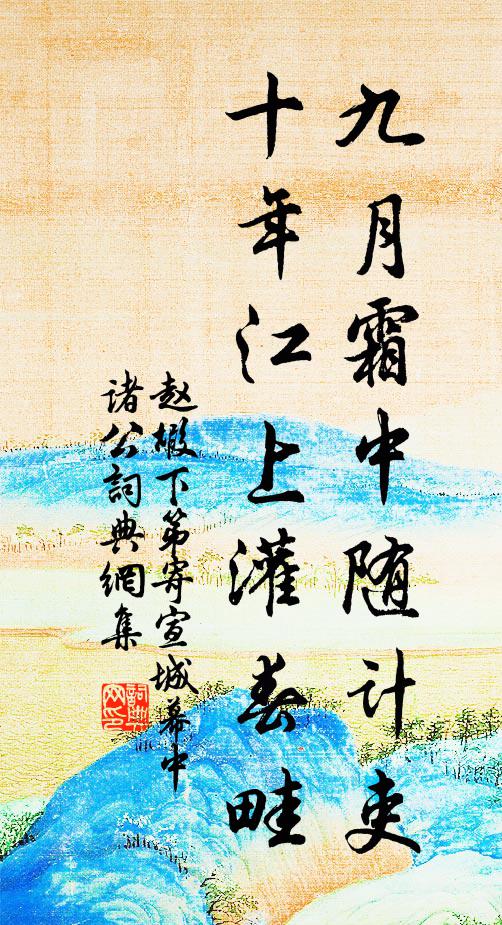 九月霜中随计吏
十年江上灌春畦
赵嘏下第寄宣城幕中
诸公詞典網集